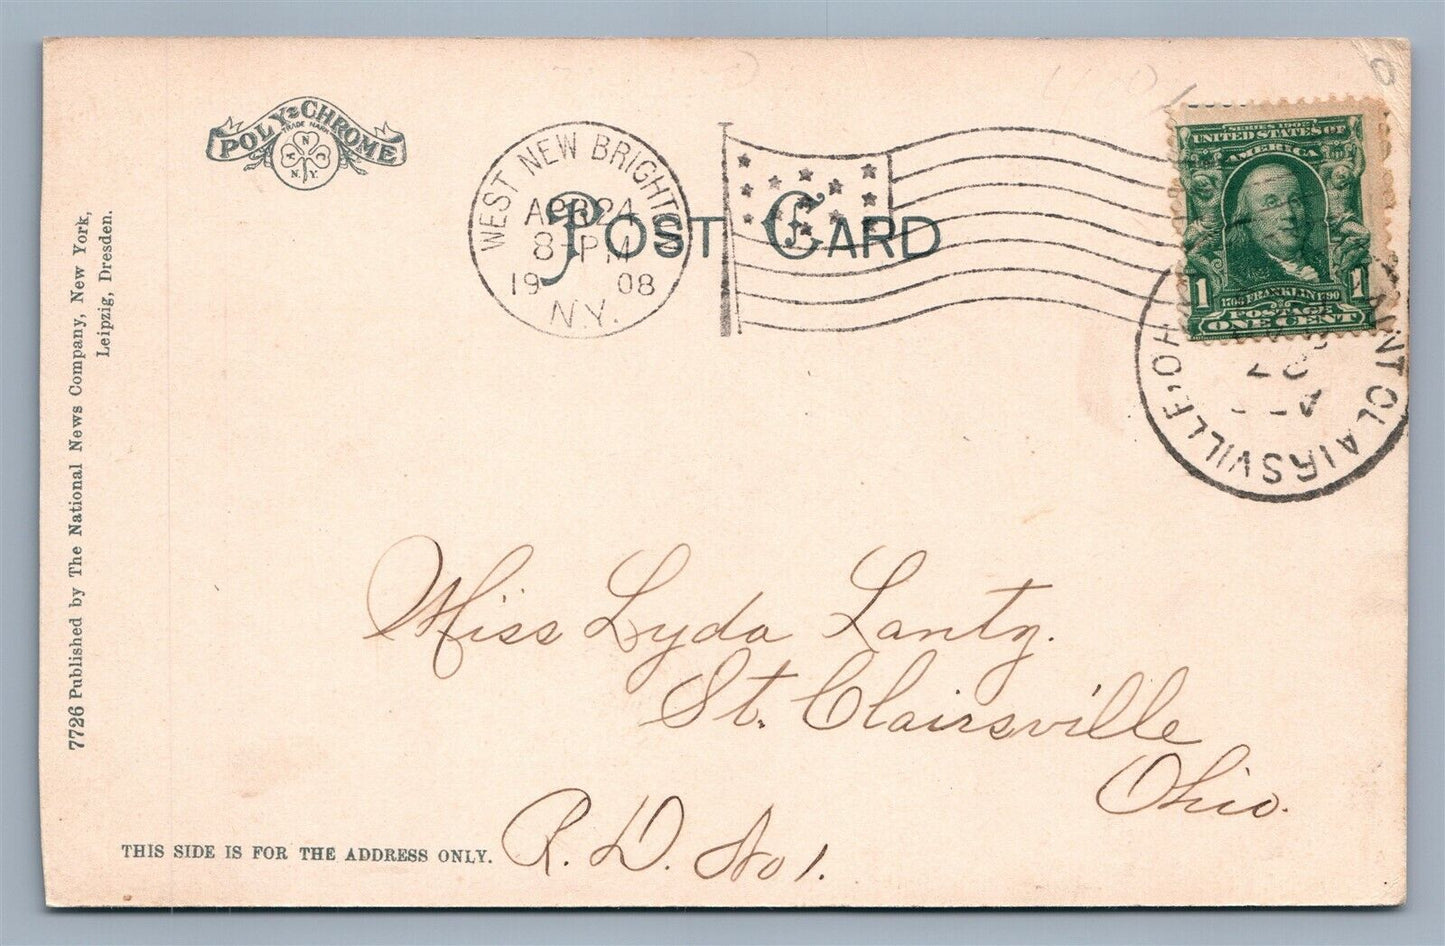 POLY-CHROME
TRADE MARK
N
A N C
N.Y.
POST CARD
WEST NEW BRIGHTON
APR 24
8 PM
1908
N.Y.
SERIES 1902
UNITED STATES OF
AMERICA
1 1
1706 FRANKLIN 1790
POSTAGE
ONE CENT
SAINT CLAIRSVILLE, OH
7726 Published by The National News Company, New York,
Leipzig, Dresden.
Miss Lyda Lantz.
St. Clairsville
Ohio.
R. D. No 1.
THIS SIDE IS FOR THE ADDRESS ONLY.